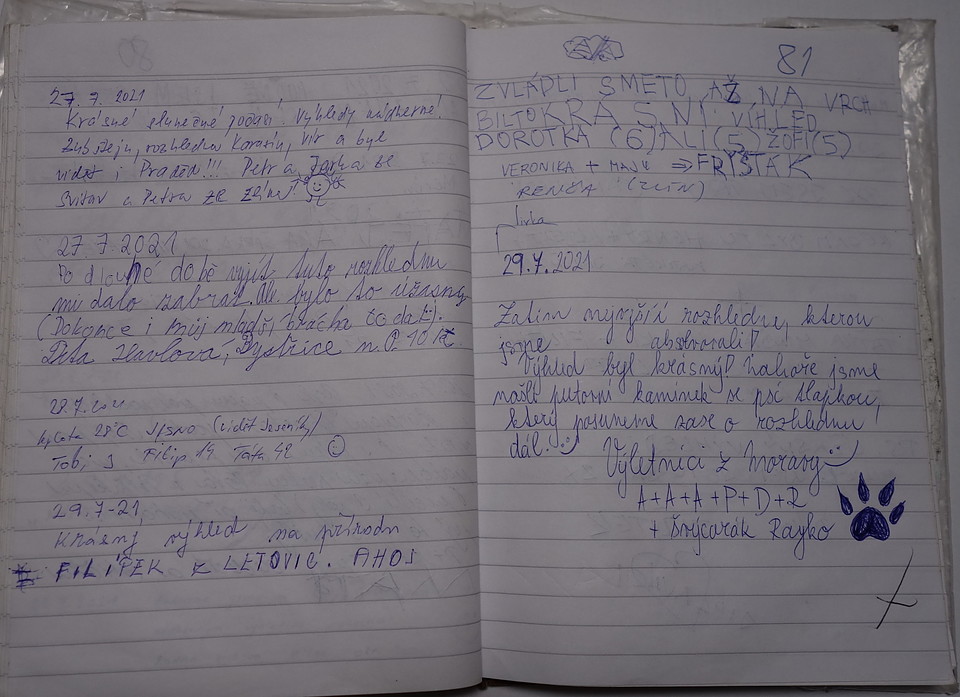 27. 7. 2021
Krásné slunečné počasí výhledy nádherné!
Zubštejn, rozhledna Karasín, Vír a byl
vidět i Praděd!!! Petr a Jarka ze
Svitav a Petra ze
27.7.2021
Po dlouhé době vyjít tuto rozhlednu
mi dalo zabrat. Ale bylo to úžasný
(Dokonce i můj mladší brácha to dal :).
Havlová, Bystřice n. P. 10 let
28.7.2021
teplota 28°C JASNO (vidět Jeseníky)
Tobi 3 Filip 14 Táta 42
29.7-21
Krásný výhled na přírodu
FILÍPEK z LETOVIC. AHOJ
81
ZVLÁDLI SMETO AŽ NA VRCH
BILTO KRÁSNÍ VÍHLED
DOROTKA (6) ALI (5) ŽOFI (5)
VERONIKA + ⇒ FRYŠTÁK
RENČA (ZLÍN)
Jirka
29.7.2021
Zatím nejvyšší rozhledna, kterou
jsme absolvovali!
Výhled byl krásný! Nahoře jsme
našli putovní kamínek se psí tlapkou,
který posuneme zase o rozhlednu
dál. :)
Výletníci z Moravy :)
A+A+A+P+D+R
+ Švýcarák Rayko